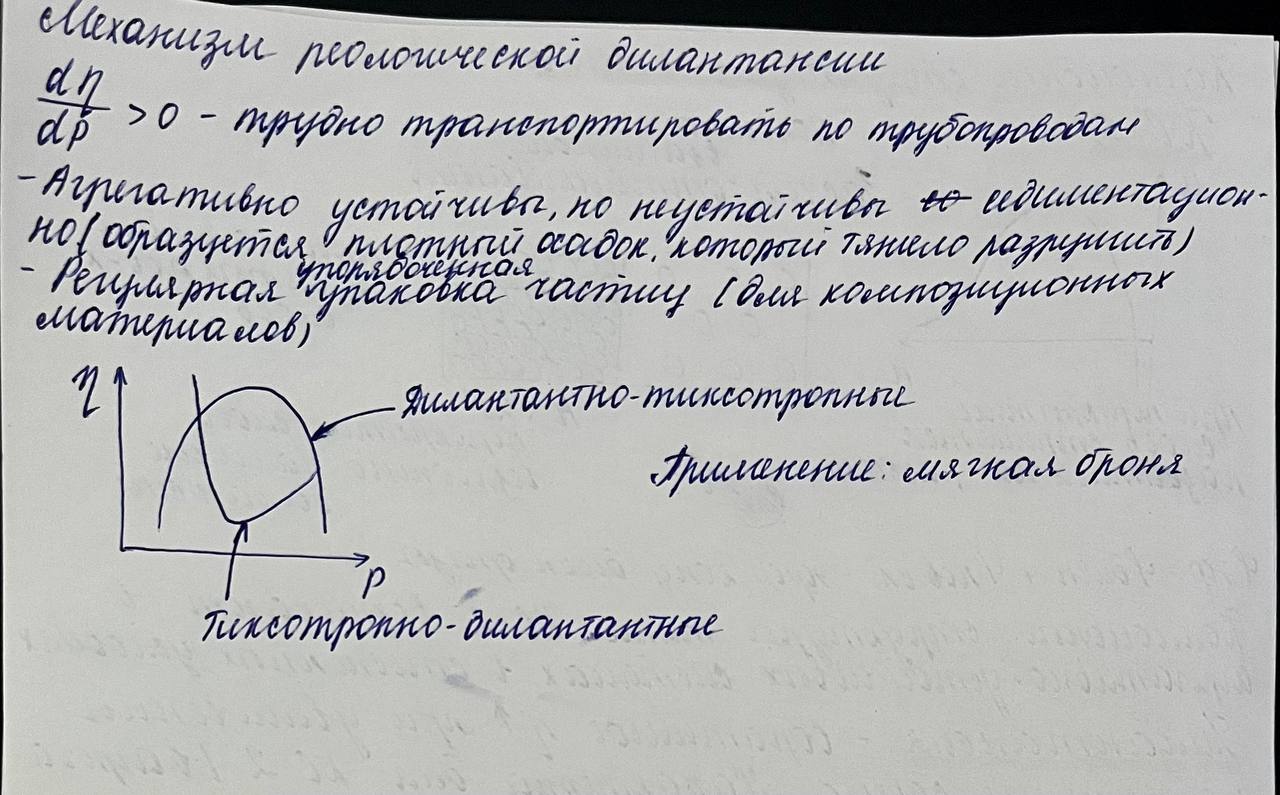 Механизм реологической дилантансии
dη/dp > 0 - трудно транспортировать по трубопроводам
- Агрегативно устойчивы, но неустойчивы седиментацион-
но (образуется плотный осадок, который тяжело разрушить)
упорядоченная
- Регулярная упаковка частиц (для композиционных
материалов)
η
Дилантантно-тиксотропные
Применение: мягкая броня
p
Тиксотропно-дилантантные